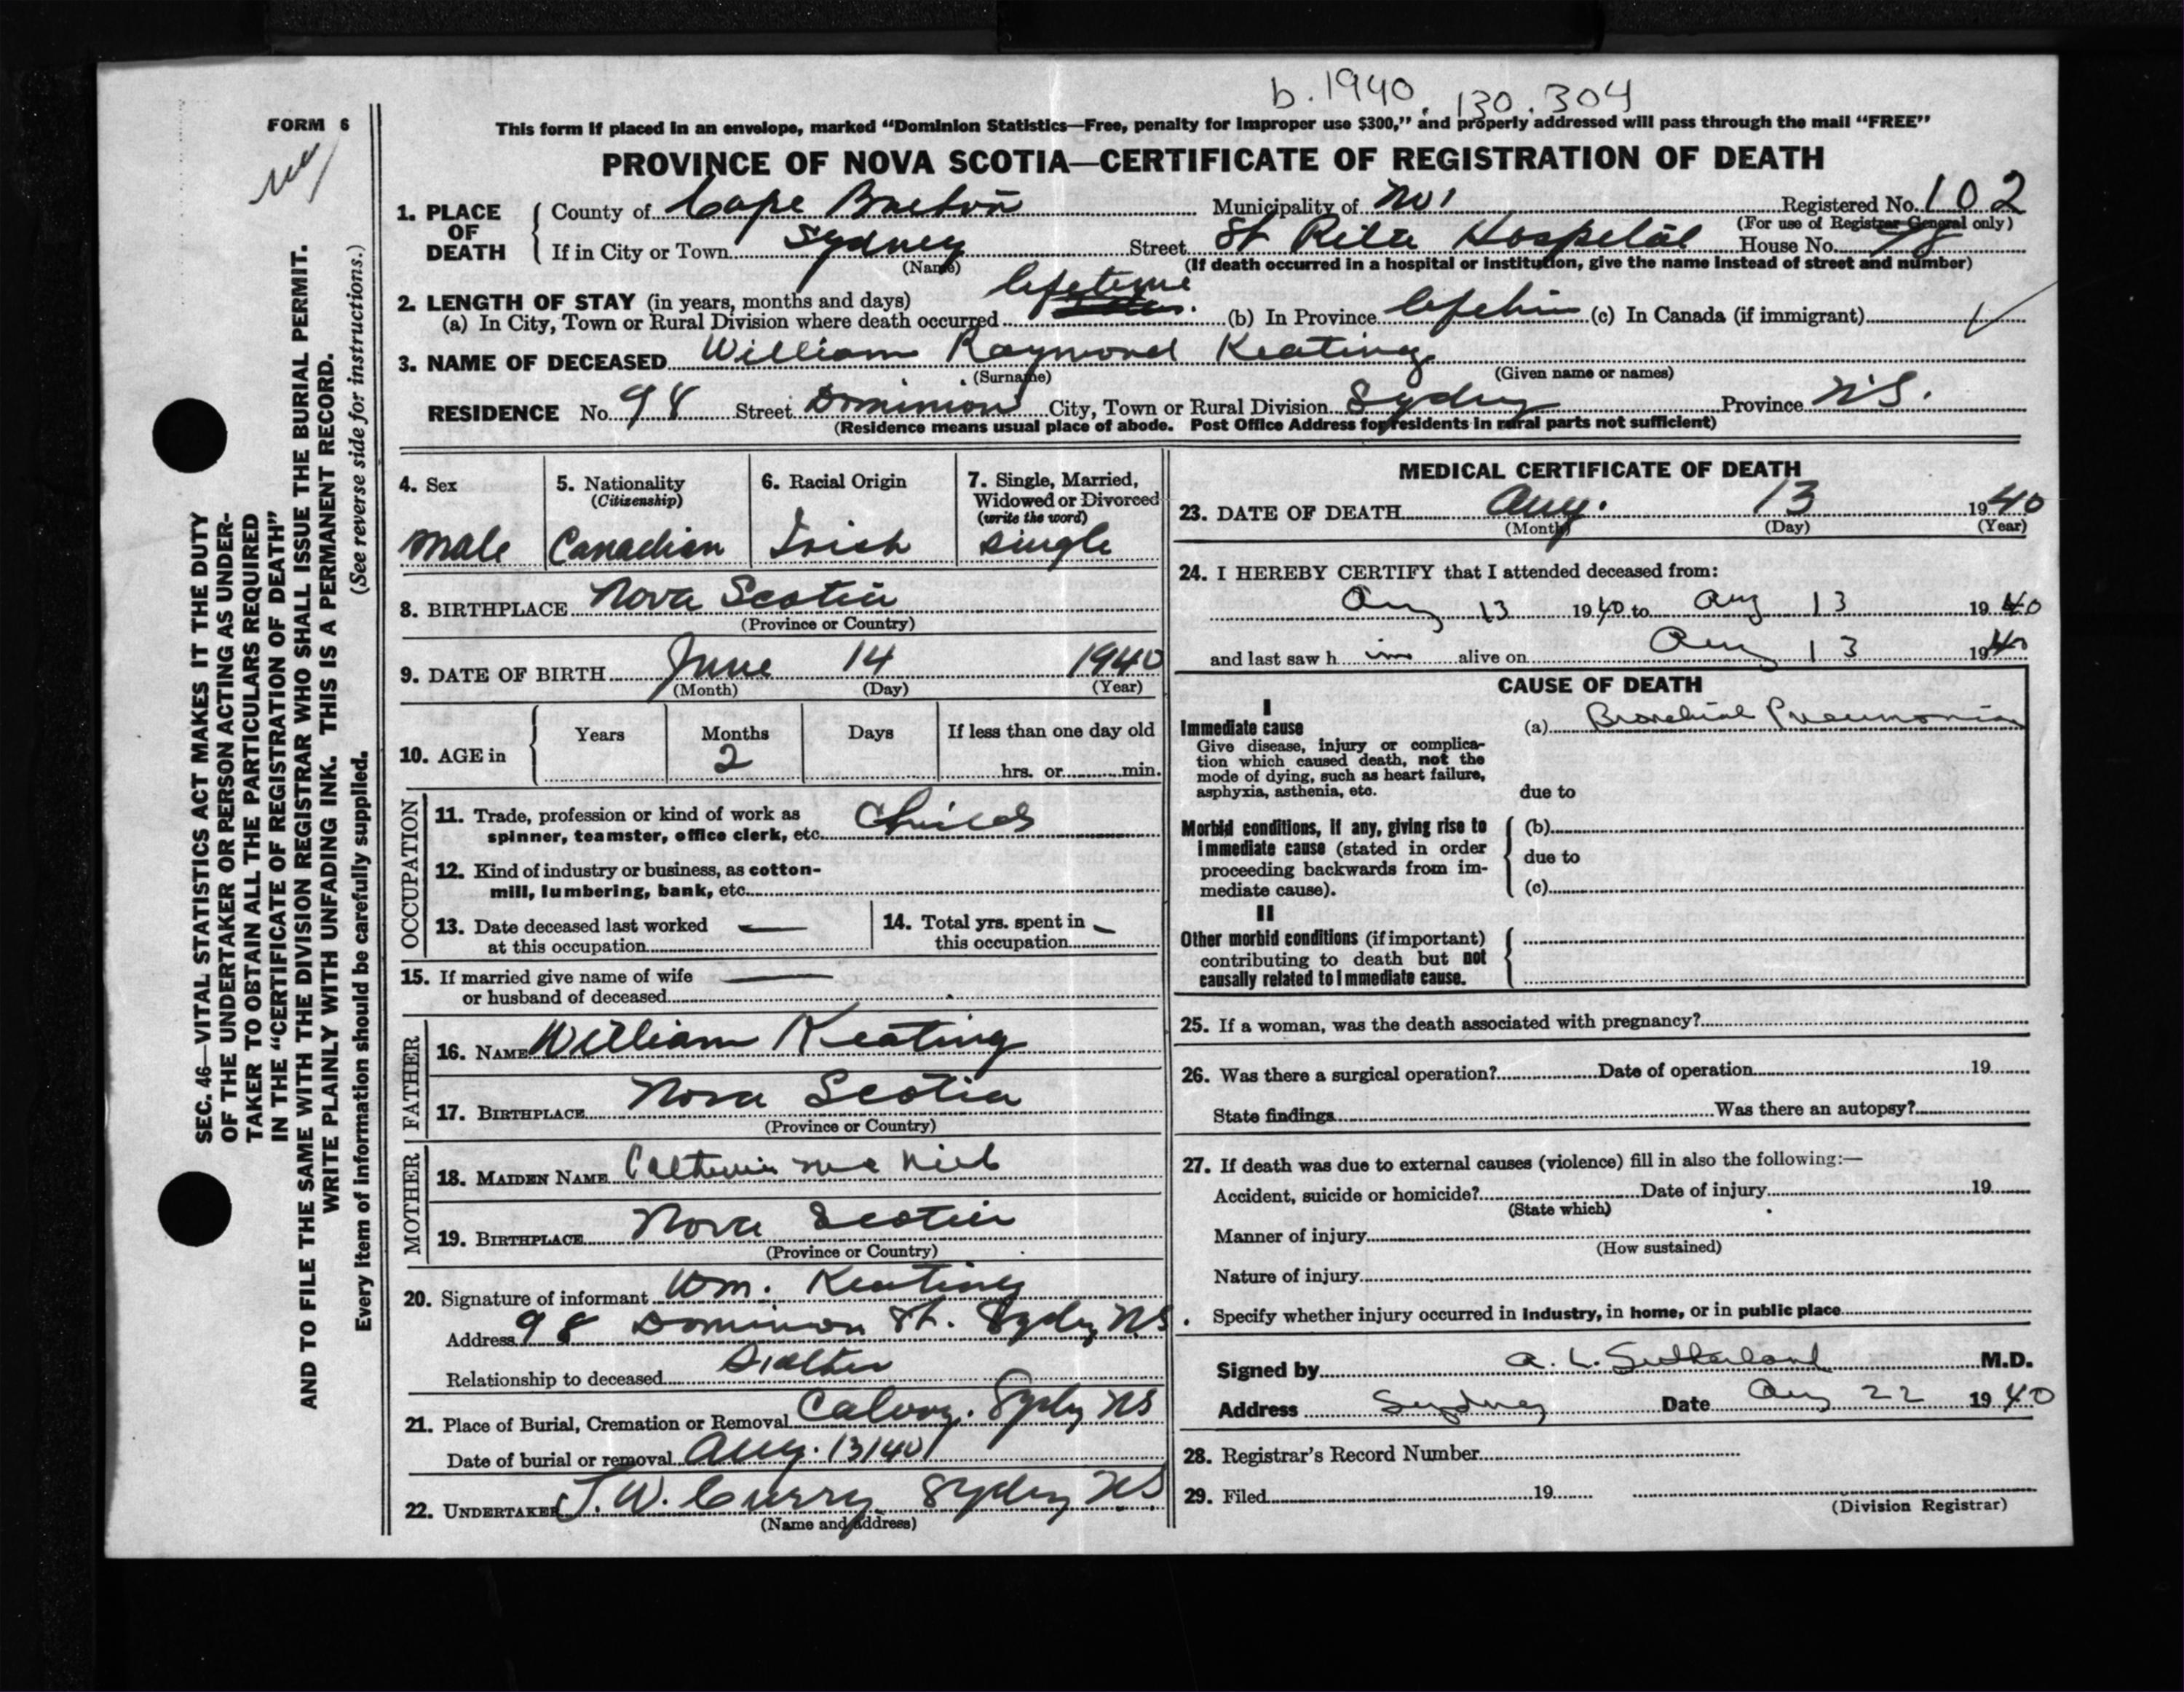 b. 1940. 130. 304
FORM 6
This form if placed in an envelope, marked “Dominion Statistics—Free, penalty for improper use $300,” and properly addressed will pass through the mail “FREE”
PROVINCE OF NOVA SCOTIA—CERTIFICATE OF REGISTRATION OF DEATH
1. PLACE OF DEATH
County of Cape Breton Municipality of No 1 Registered No. 102
(For use of Registrar General only)
If in City or Town Sydney Street St Rita Hospital House No. 78
(Name) (If death occurred in a hospital or institution, give the name instead of street and number)
2. LENGTH OF STAY (in years, months and days) lifetime
(a) In City, Town or Rural Division where death occurred (b) In Province (c) In Canada (if immigrant)
3. NAME OF DECEASED William Raymond Keating
(Surname) (Given name or names)
RESIDENCE No. 98 Street Dominion City, Town or Rural Division Sydney Province N.S.
(Residence means usual place of abode. Post Office Address for residents in rural parts not sufficient)
4. Sex
male
5. Nationality
(Citizenship)
Canadian
6. Racial Origin
Irish
7. Single, Married,
Widowed or Divorced
(write the word)
single
8. BIRTHPLACE Nova Scotia
(Province or Country)
9. DATE OF BIRTH June 14 1940
(Month) (Day) (Year)
10. AGE in Years Months Days If less than one day old
2
hrs. or min.
OCCUPATION
11. Trade, profession or kind of work as
spinner, teamster, office clerk, etc. Child
12. Kind of industry or business, as cotton-
mill, lumbering, bank, etc.
13. Date deceased last worked —
at this occupation
14. Total yrs. spent in —
this occupation
15. If married give name of wife —
or husband of deceased
FATHER
16. NAME William Keating
17. BIRTHPLACE Nova Scotia
(Province or Country)
MOTHER
18. MAIDEN NAME
19. BIRTHPLACE Nova Scotia
(Province or Country)
20. Signature of informant Wm. Keating
Address 98 Dominion St. Sydney NS.
Relationship to deceased
21. Place of Burial, Cremation or Removal Calvary. Sydney NS
Date of burial or removal Aug. 13/40
22. UNDERTAKER T. W. Curry Sydney NS
(Name and address)
MEDICAL CERTIFICATE OF DEATH
23. DATE OF DEATH Aug. 13 1940
(Month) (Day) (Year)
24. I HEREBY CERTIFY that I attended deceased from:
Aug 13 1940 to Aug 13 1940
and last saw him alive on Aug 13 1940
CAUSE OF DEATH
I
Immediate cause (a) Bronchial Pneumonia
Give disease, injury or complica-
tion which caused death, not the
mode of dying, such as heart failure,
asphyxia, asthenia, etc. due to
Morbid conditions, if any, giving rise to
immediate cause (stated in order
proceeding backwards from im-
mediate cause).
(b)
due to
(c)
II
Other morbid conditions (if important)
contributing to death but not
causally related to immediate cause.
25. If a woman, was the death associated with pregnancy?
26. Was there a surgical operation? Date of operation 19
State findings Was there an autopsy?
27. If death was due to external causes (violence) fill in also the following:—
Accident, suicide or homicide? Date of injury 19
(State which)
Manner of injury
(How sustained)
Nature of injury
Specify whether injury occurred in industry, in home, or in public place
Signed by A. L. Sutherland M.D.
Address Sydney Date Aug 22 1940
28. Registrar’s Record Number
29. Filed 19
(Division Registrar)
SEC. 46—VITAL STATISTICS ACT MAKES IT THE DUTY
OF THE UNDERTAKER OR PERSON ACTING AS UNDER-
TAKER TO OBTAIN ALL THE PARTICULARS REQUIRED
IN THE “CERTIFICATE OF REGISTRATION OF DEATH”
AND TO FILE THE SAME WITH THE DIVISION REGISTRAR WHO SHALL ISSUE THE BURIAL PERMIT.
WRITE PLAINLY WITH UNFADING INK. THIS IS A PERMANENT RECORD.
Every item of information should be carefully supplied. (See reverse side for instructions.)